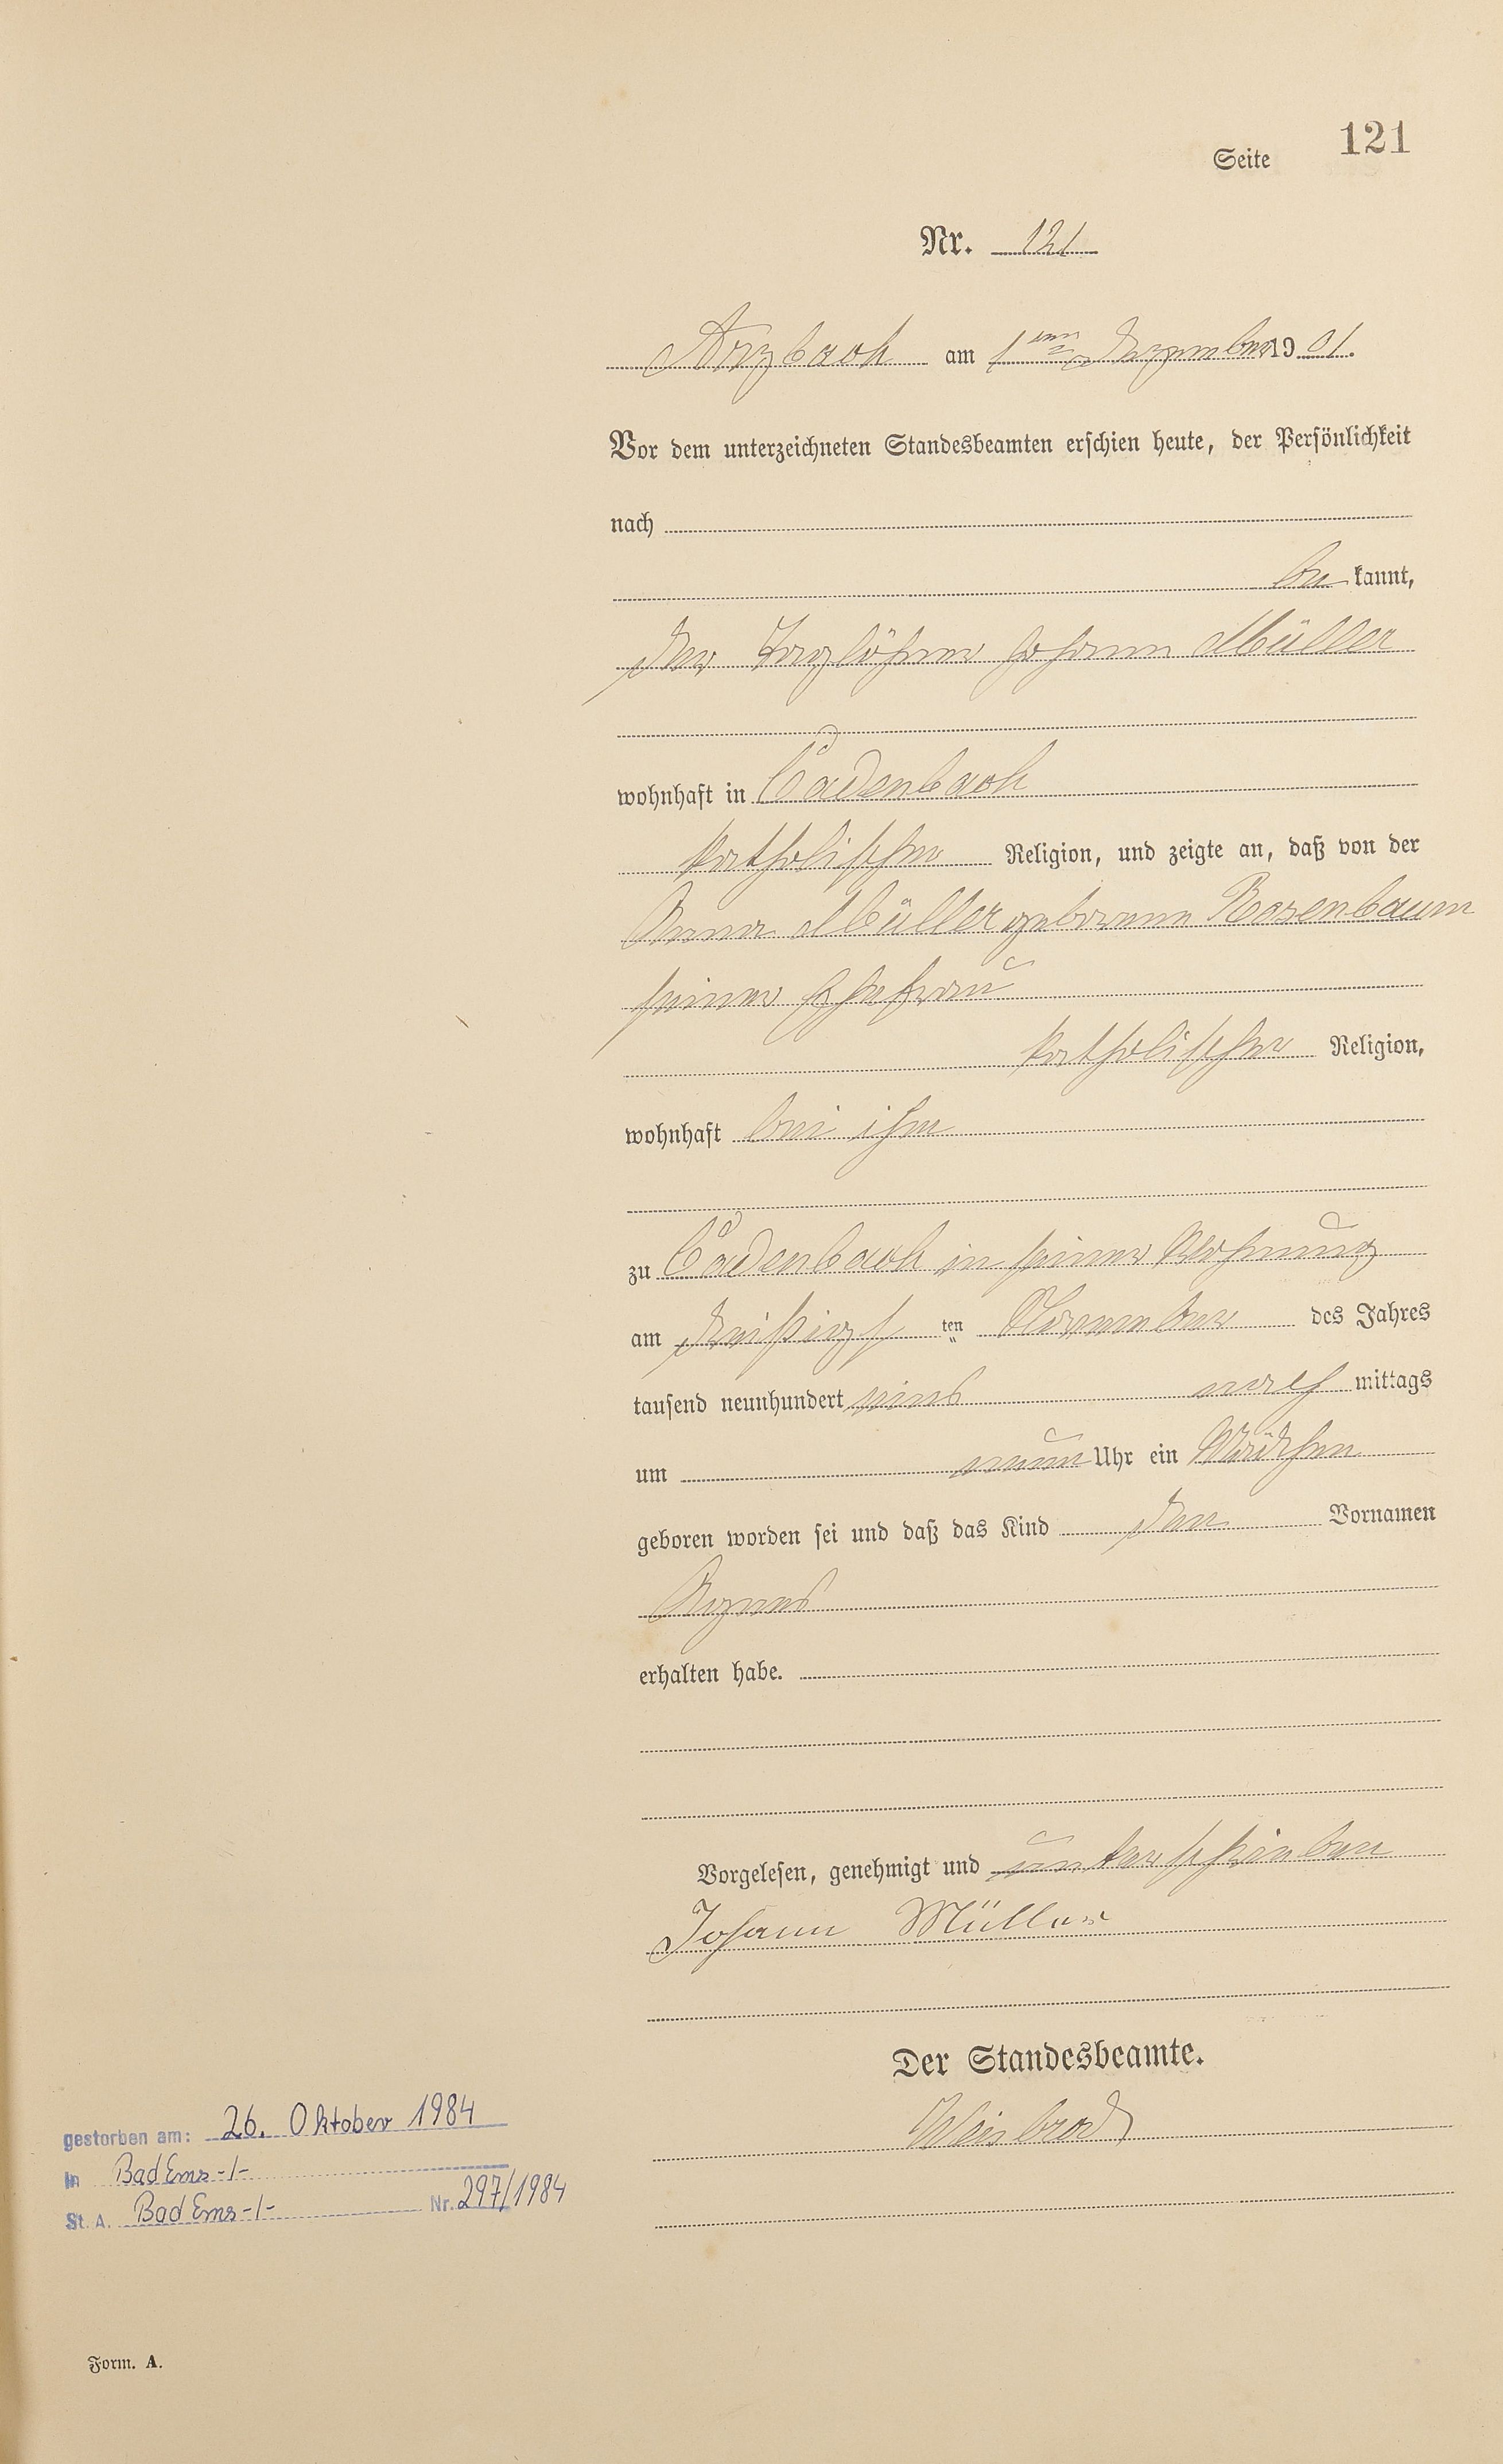 Seite 121
Nr. 121
Arzbach am 1ten Dezember 1901.
Vor dem unterzeichneten Standesbeamten erschien heute, der Persönlichkeit
nach
be kannt,
der Taglöhner Johann Müller
wohnhaft in Cadenbach
katholischer Religion, und zeigte an, daß von der
Anna Müller geborene Rosenbaum
seiner Ehefrau
katholischer Religion,
wohnhaft bei ihm
zu Cadenbach in seiner Wohnung
am dreißigst ten November des Jahres
tausend neunhundert eins nach mittags
um neun Uhr ein Mädchen
geboren worden sei und daß das Kind den Vornamen
Agnes
erhalten habe.
Vorgelesen, genehmigt und unterschrieben
Johann Müller
Der Standesbeamte.
Weisbrod
gestorben am: 26. Oktober 1984
In Bad Ems -/-
St. A. Bad Ems -/- Nr. 297/1984
Form. A.